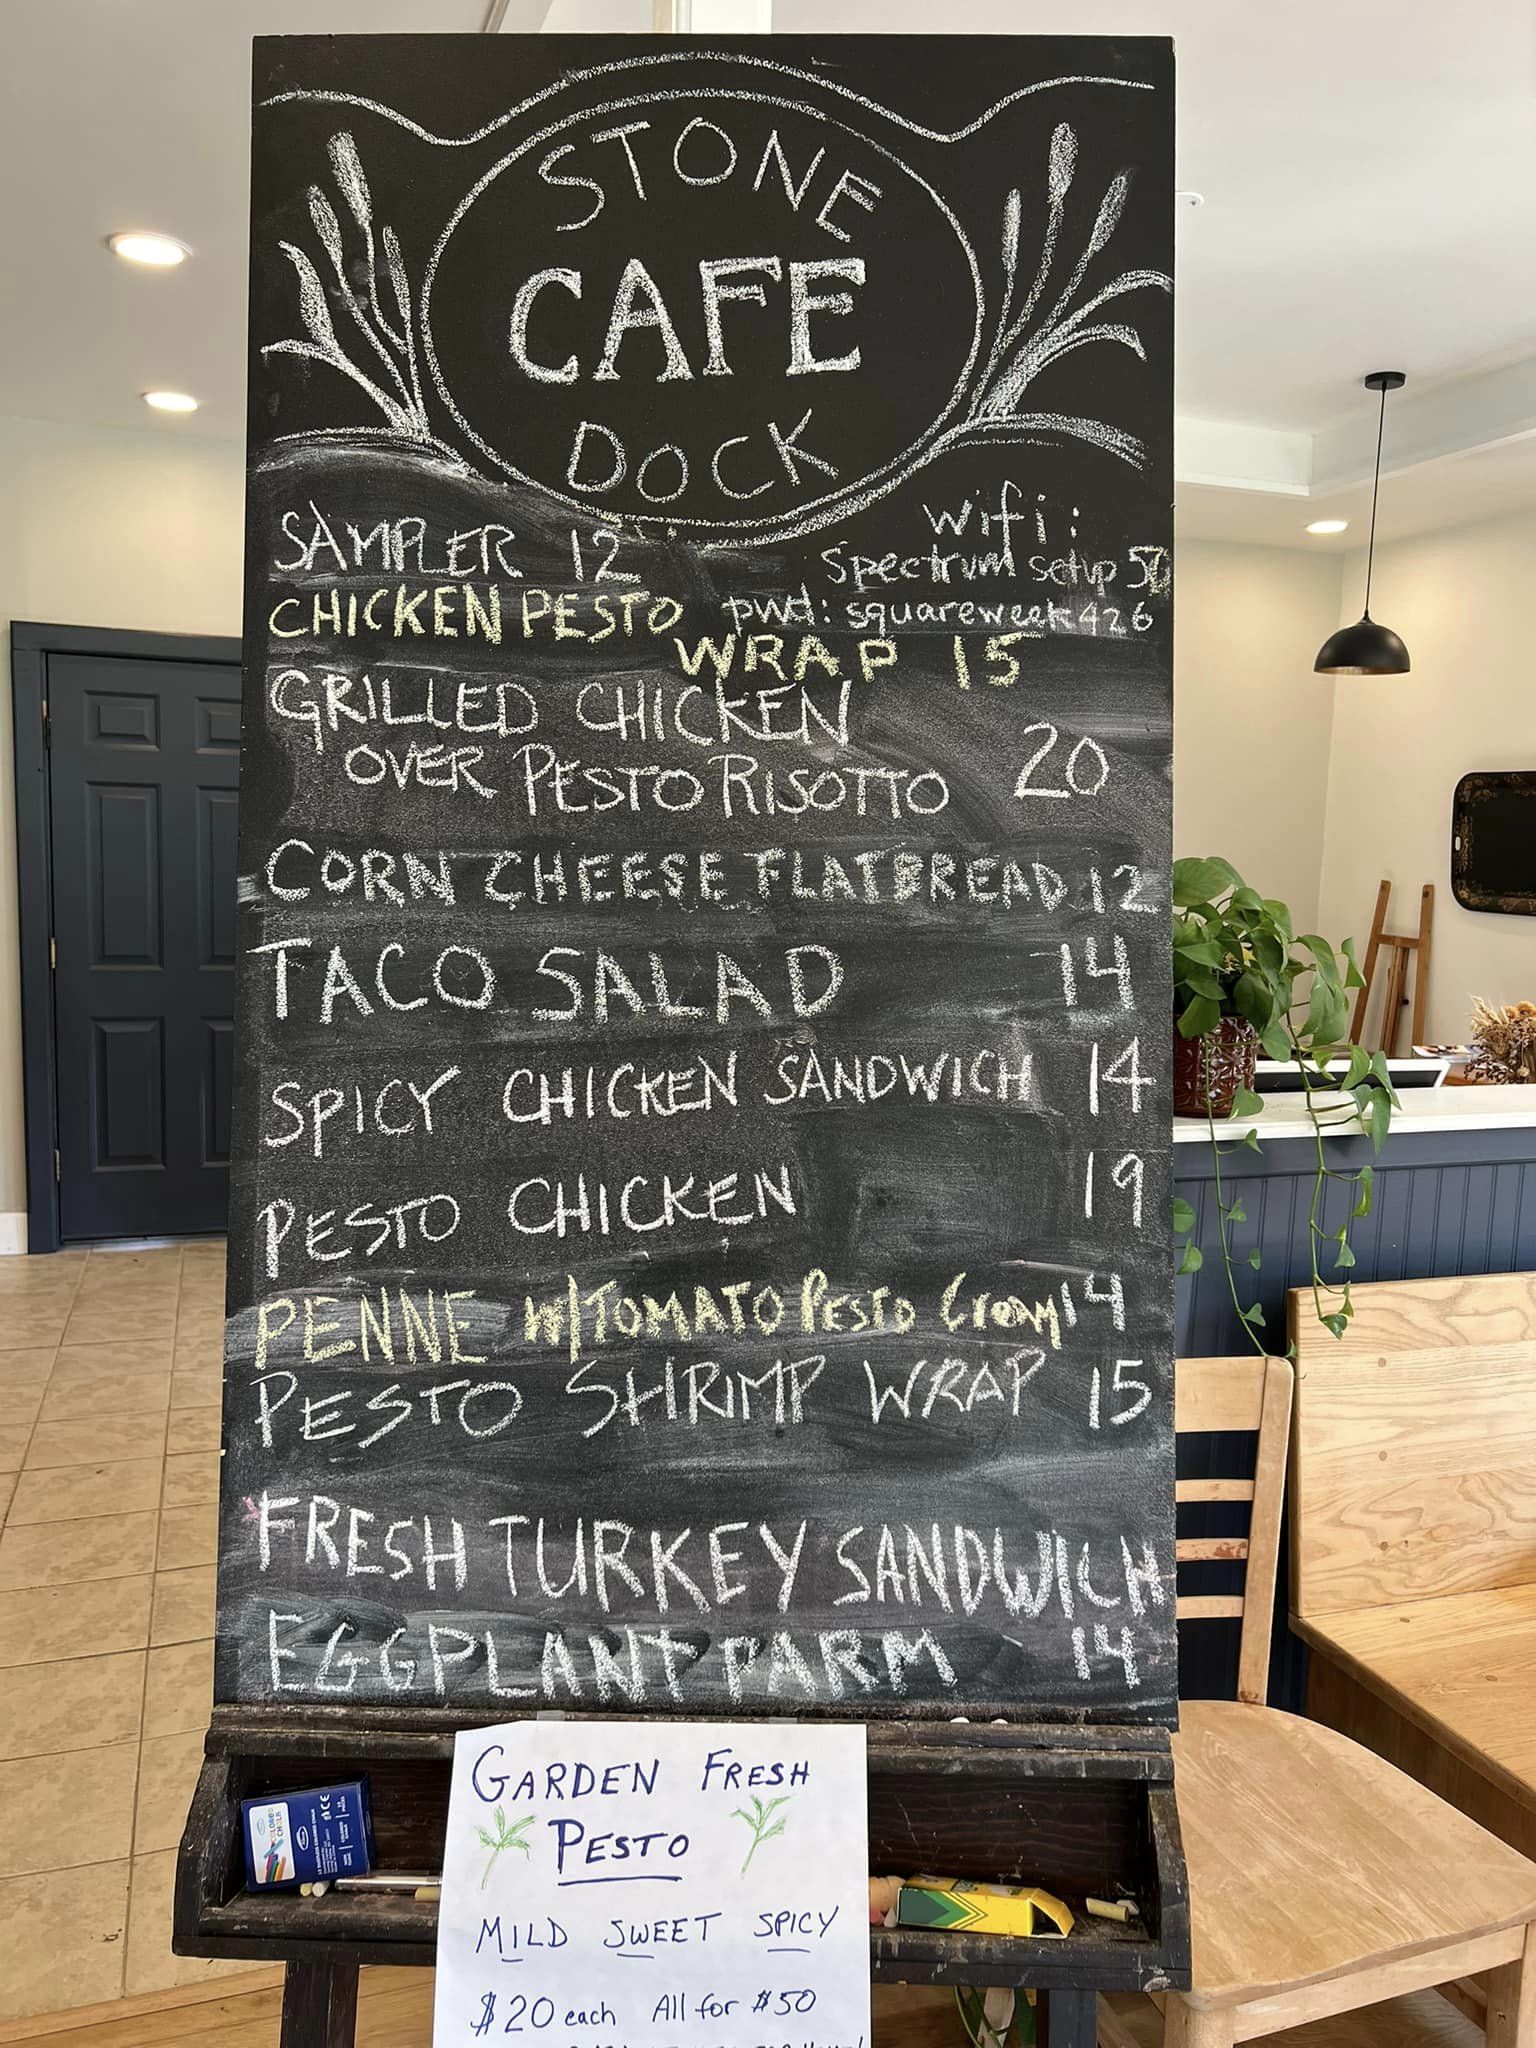 STONE
CAFE
DOCK
SAMPLER 12
wifi:
Spectrum setup 50
CHICKEN PESTO
pwd: squareweek426
WRAP 15
GRILLED CHICKEN
OVER PESTO RISOTTO 20
CORN CHEESE FLATBREAD 12
TACO SALAD 14
SPICY CHICKEN SANDWICH 14
PESTO CHICKEN 19
PENNE W/TOMATO PESTO Cream 14
PESTO SHRIMP WRAP 15
FRESH TURKEY SANDWICH
EGGPLANT PARM 14
GARDEN FRESH
PESTO
MILD SWEET SPICY
$20 each All for $50
COLORED
CHALK